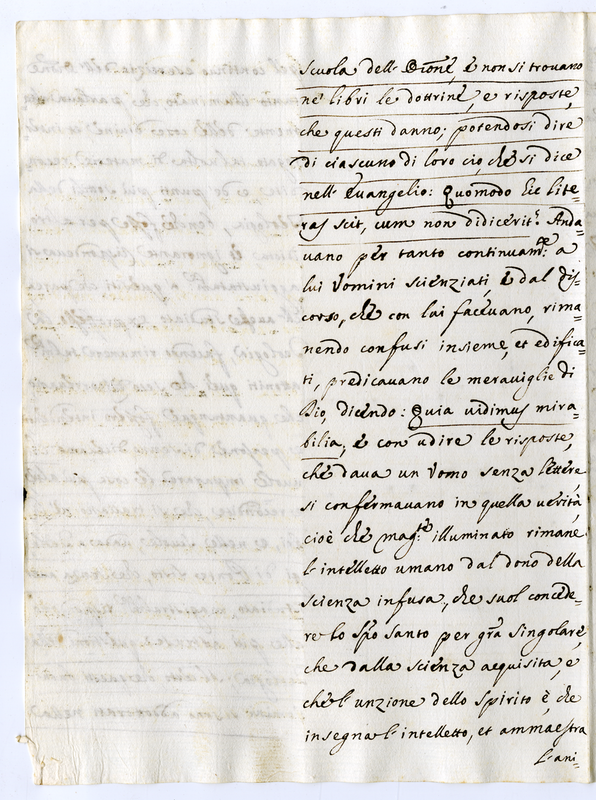 scuola dell' Orõne, e non si trovano
ne' libri le dottrine, e risposte,
che questi danno; potendosi dire
di ciascuno di loro ciò, che si dice
nell' Evangelio: Quomodo hic lite-
ras scit, cum non didicerit? Anda-
vano per tanto continuam.te a
lui Vomini scienziati, e dal dis-
corso, che con lui facevano, rima-
nendo confusi insieme, et edifica-
ti, predicavano le meraviglie di
Dio, dicendo: Quia vidimus mira-
bilia; e con udire le risposte,
che dava un Vomo senza lettere,
si confermavano in quella verità,
cioè che mag.te illuminato rimane
l'intelletto umano dal dono della
scienza infusa, che suol concede-
re lo Spõ Santo per grã singolare,
che dalla scienza acquisita, e
che l'unzione dello Spirito è, che
insegna l'intelletto, et ammaestra
l'ani-